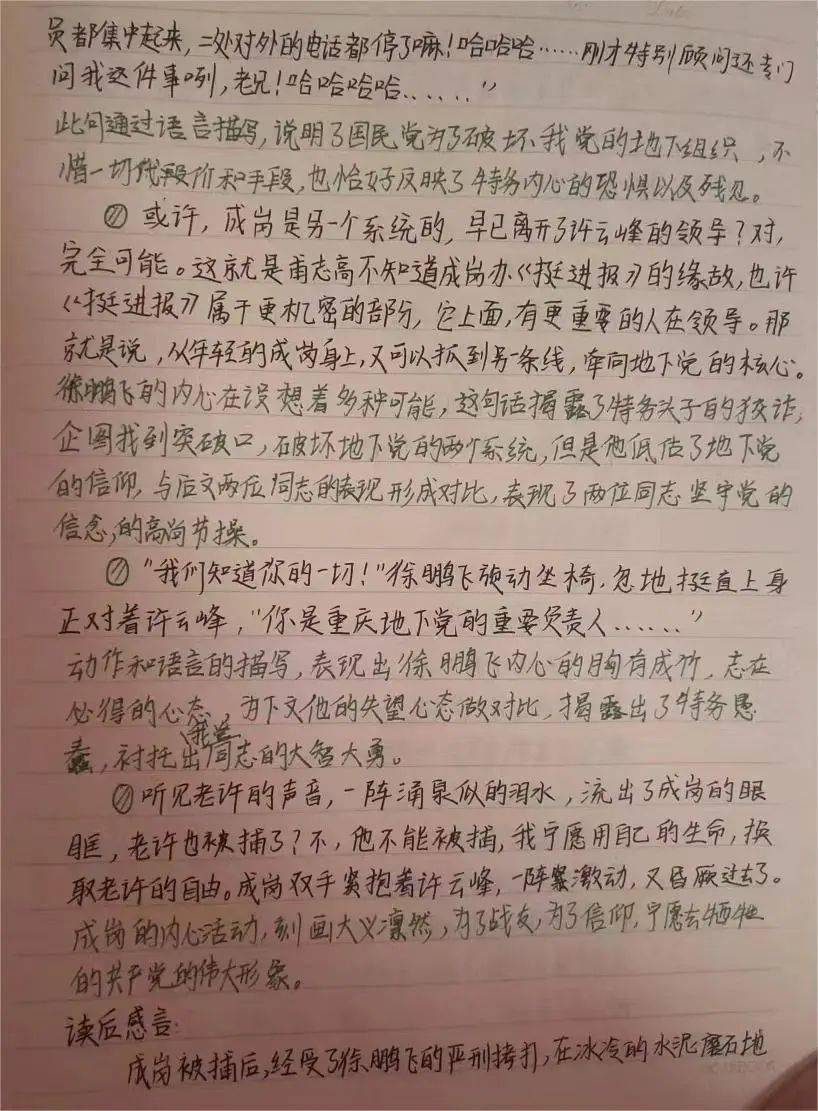 员都集中起来，二处对外的电话都停了嘛！哈哈哈……刚才特别顾问还专门
问我这件事咧，老兄！哈哈哈哈……”
此句通过语言描写，说明了国民党为了破坏我党的地下组织，不
惜一切代价和手段，也恰好反映了特务内心的恐惧以及残忍。
② 或许，成岗是另一个系统的，早已离开了许云峰的领导？对，
完全可能。这就是甫志高不知道成岗办《挺进报》的缘故，也许
《挺进报》属于更机密的部分，它上面，有更重要的人在领导。那
就是说，从年轻的成岗身上，又可以抓到另一条线，牵向地下党的核心。
徐鹏飞的内心在设想着多种可能，这句话揭露了特务头子的狡诈，
企图找到突破口，破坏地下党的两个系统，但是他低估了地下党
的信仰，与后文两位同志的表现形成对比，表现了两位同志坚守党的
信念，的高尚节操。
“我们知道你的一切！”徐鹏飞动坐椅，忽地挺直上身
正对着许云峰，“你是重庆地下党的重要负责人……”
动作和语言的描写，表现出徐鹏飞内心的胸有成竹，志在
必得的心态，为下文他的失望心态做对比，揭露出了特务愚
蠢，衬托出我党同志的大智大勇。
听见老许的声音，一阵涌泉似的泪水，流出了成岗的眼
眶，老许也被捕了？不，他不能被捕，我宁愿用自己的生命，换
取老许的自由。成岗双手紧抱着许云峰，一阵激动，又昏厥过去了。
成岗的内心活动，刻画大义凛然，为了战友，为了信仰，宁愿去牺牲
的共产党的伟大形象。
读后感言：
成岗被捕后，经受了徐鹏飞的严刑拷打，在冰冷的水泥磨石地